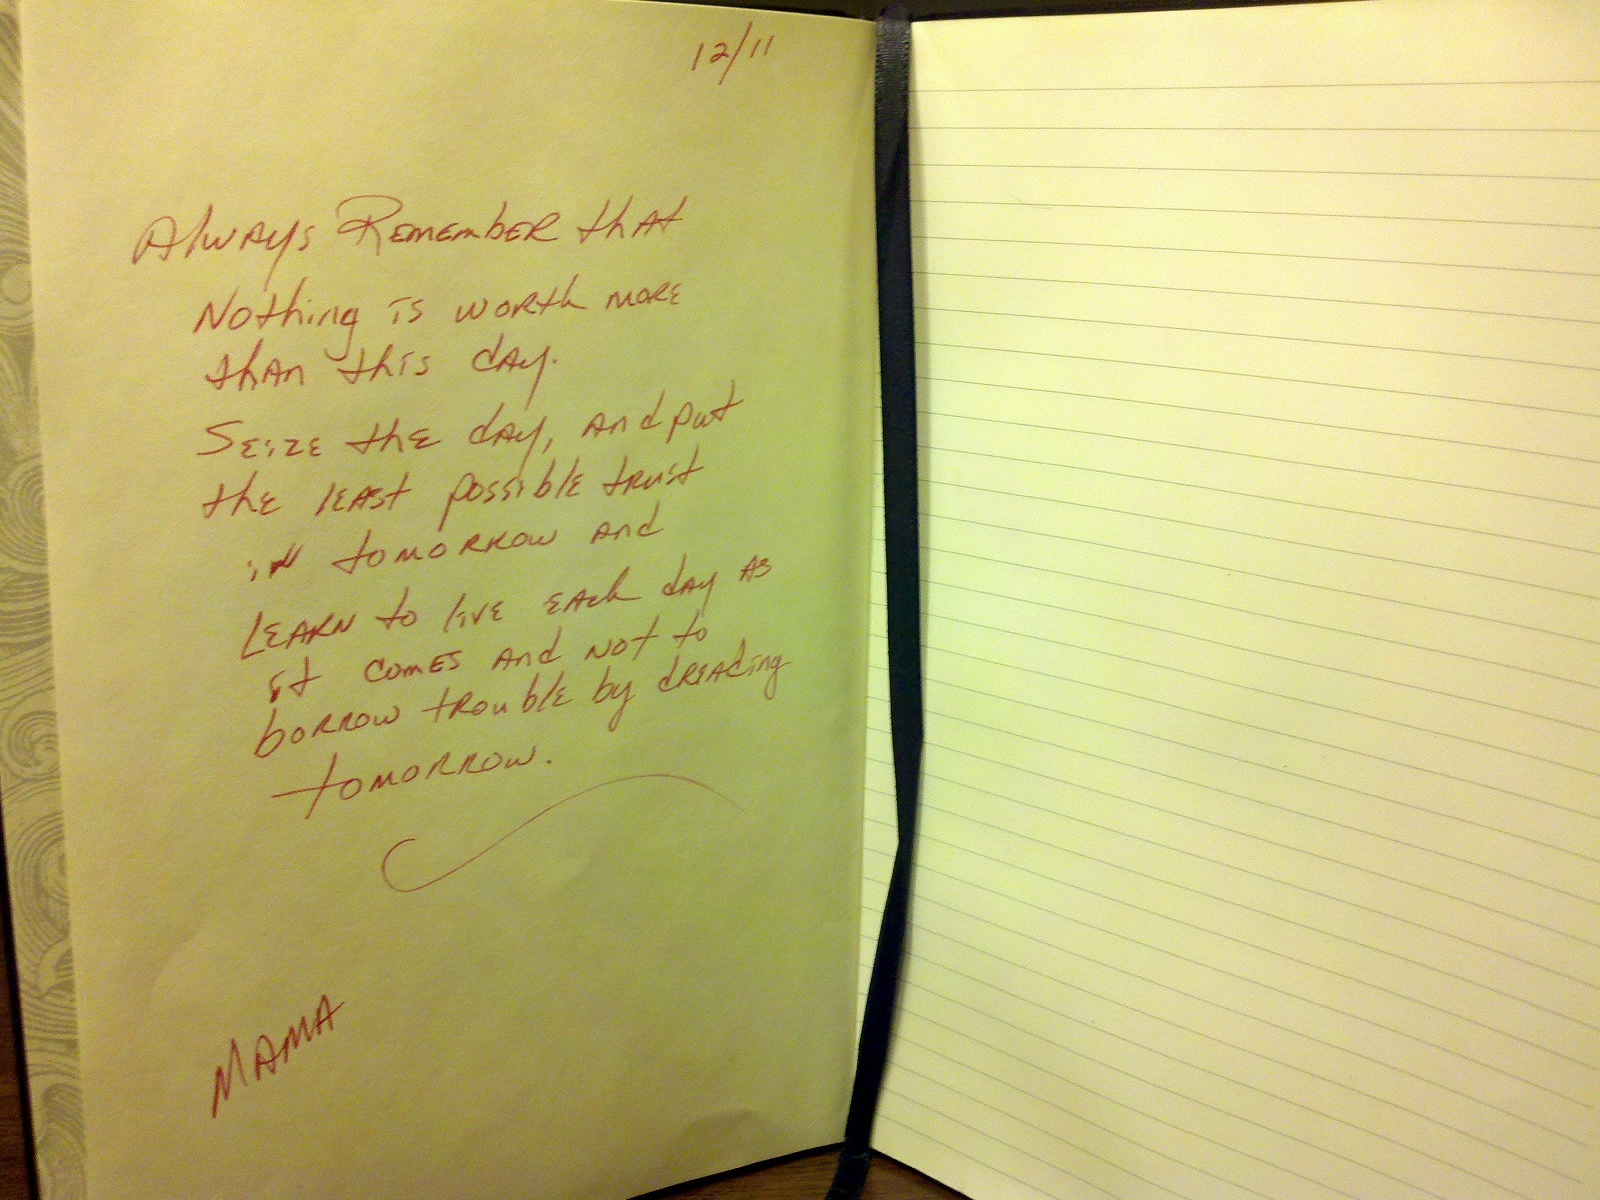 12/11
Always Remember that
Nothing is worth more
than this day.
Seize the day, and put
the least possible trust
in tomorrow and
Learn to live each day as
it comes and not to
borrow trouble by dreading
tomorrow.
MAMA